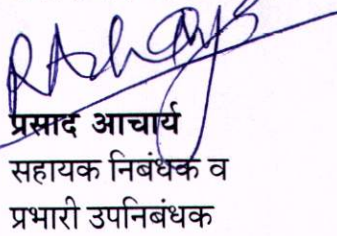 प्रसाद आचार्य
सहायक निबंधक व
प्रभारी उपनिबंधक